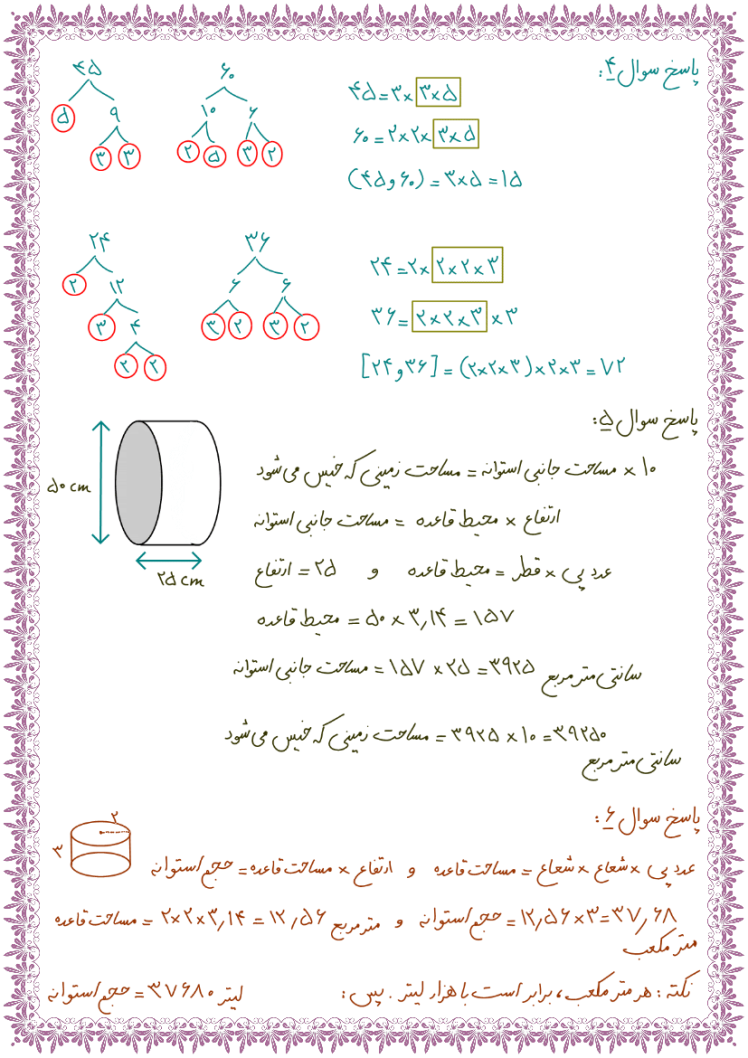 پاسخ سوال ۴:
۴۵ ۶۰
۵ ۹ ۱۰ ۶
۳ ۳ ۲ ۵ ۳ ۲
۴۵=۳×۳×۵
۶۰=۲×۲×۳×۵
(۴۵ و ۶۰) = ۳×۵ = ۱۵
۲۴ ۳۶
۲ ۱۲ ۶ ۶
۳ ۴ ۳ ۲ ۳ ۲
۲ ۲
۲۴=۲×۲×۲×۳
۳۶=۲×۲×۳×۳
[۲۴ و ۳۶] = (۲×۲×۳)×۲×۳ = ۷۲
پاسخ سوال ۵:
۵۰ cm
۲۵ cm
۱۰ × مساحت جانبی استوانه = مساحت زمینی که خیس می‌شود
ارتفاع × محیط قاعده = مساحت جانبی استوانه
عدد پی × قطر = محیط قاعده و ۲۵ = ارتفاع
محیط قاعده = ۵۰ × ۳٫۱۴ = ۱۵۷
مساحت جانبی استوانه = ۱۵۷ × ۲۵ = ۳۹۲۵ سانتی متر مربع
مساحت زمینی که خیس می‌شود = ۳۹۲۵ × ۱۰ = ۳۹۲۵۰
سانتی متر مربع
پاسخ سوال ۶:
۲
۳
عدد پی × شعاع × شعاع = مساحت قاعده و ارتفاع × مساحت قاعده = حجم استوانه
مساحت قاعده = ۲×۲×۳٫۱۴ = ۱۲٫۵۶ متر مربع و حجم استوانه = ۱۲٫۵۶×۳=۳۷٫۶۸
متر مکعب
نکته: هر متر مکعب، برابر است با هزار لیتر. پس: حجم استوانه = ۳۷۶۸۰ لیتر